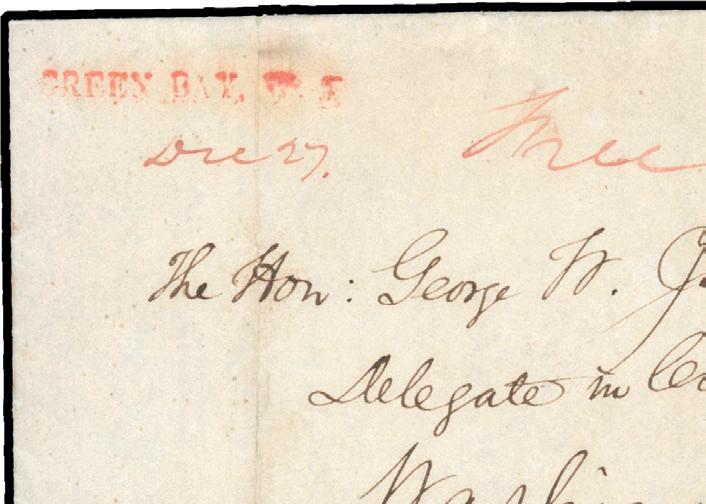 GREEN BAY, W.T
Dec 27. Free
The Hon: George W. J
Delegate in Co
Washin